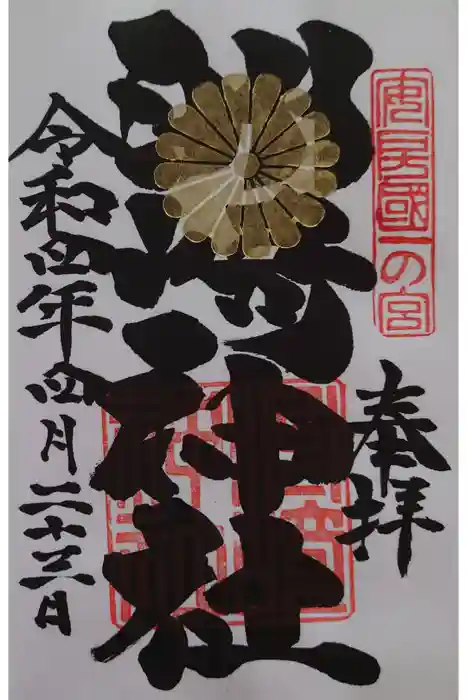 安房國一の宮
奉拝
洲崎神社
令和四年四月二十三日